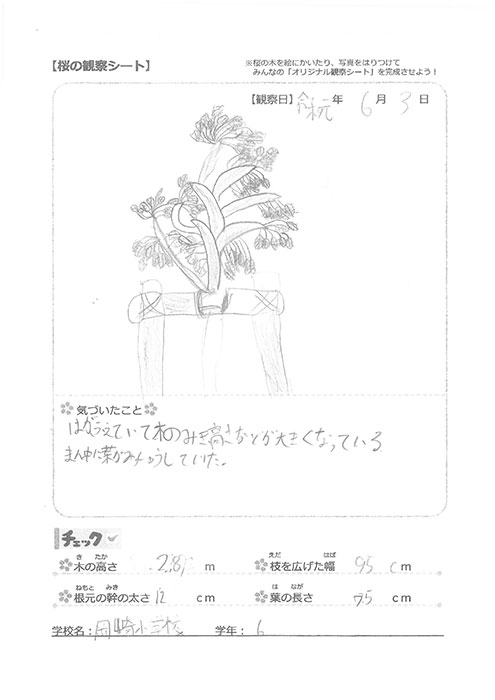 【桜の観察シート】
※桜の木を絵にかいたり、写真をはりつけて
みんなの「オリジナル観察シート」を完成させよう！
【観察日】令和元年 6月 3日
気づいたこと
はがふえていて木のみき高さなどが大きくなっている
まん中に葉がみっしゅうしていた。
チェック
木の高さ 2.81 m
枝を広げた幅 95 cm
根元の幹の太さ 12 cm
葉の長さ 7.5 cm
学校名：岡崎小学校 学年：6